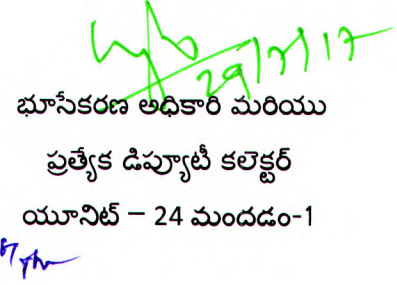 29/7/17
భూసేకరణ అధికారి మరియు
ప్రత్యేక డిప్యూటీ కలెక్టర్
యూనిట్ – 24 మందడం-1